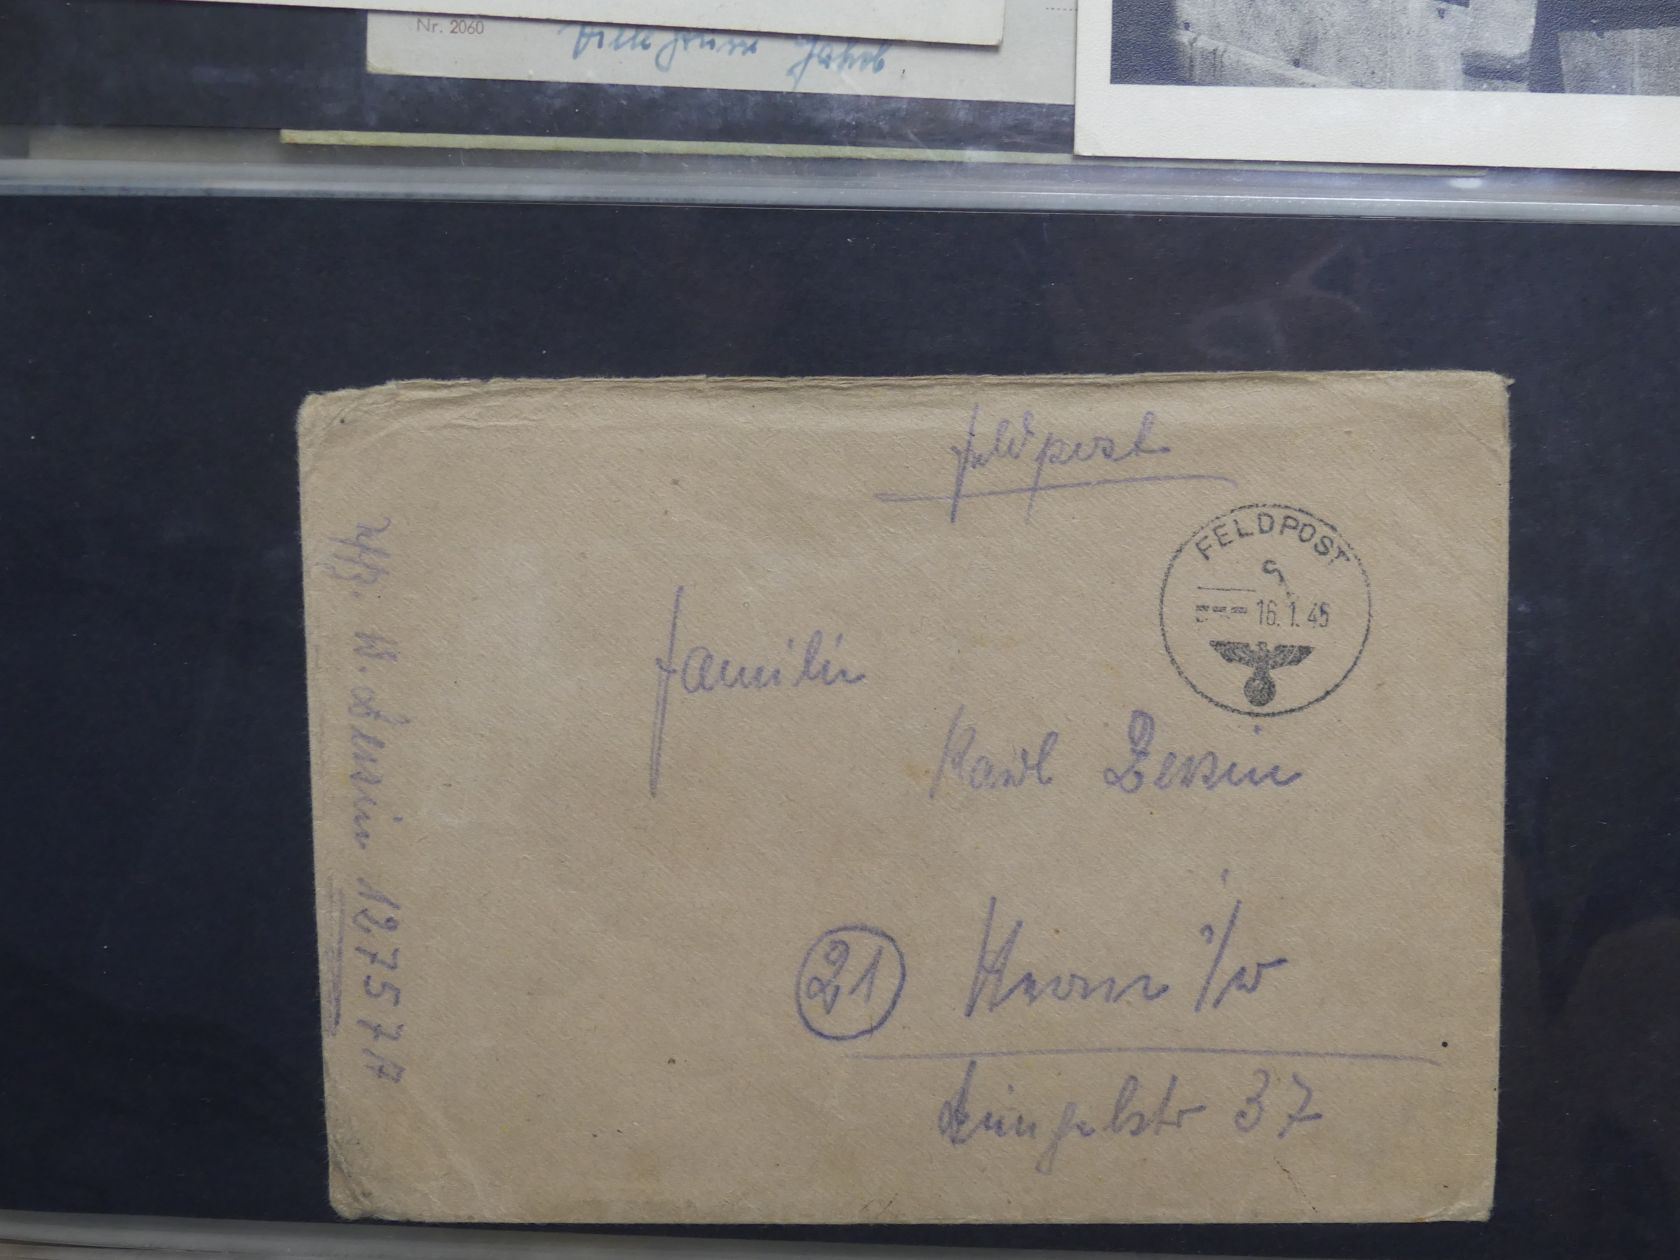 Nr. 2060
Feldpost
FELDPOST
16.1.45
Familie
Karl Zessin
21 Herne i/W
37
Uffz. W. Zessin 12757A